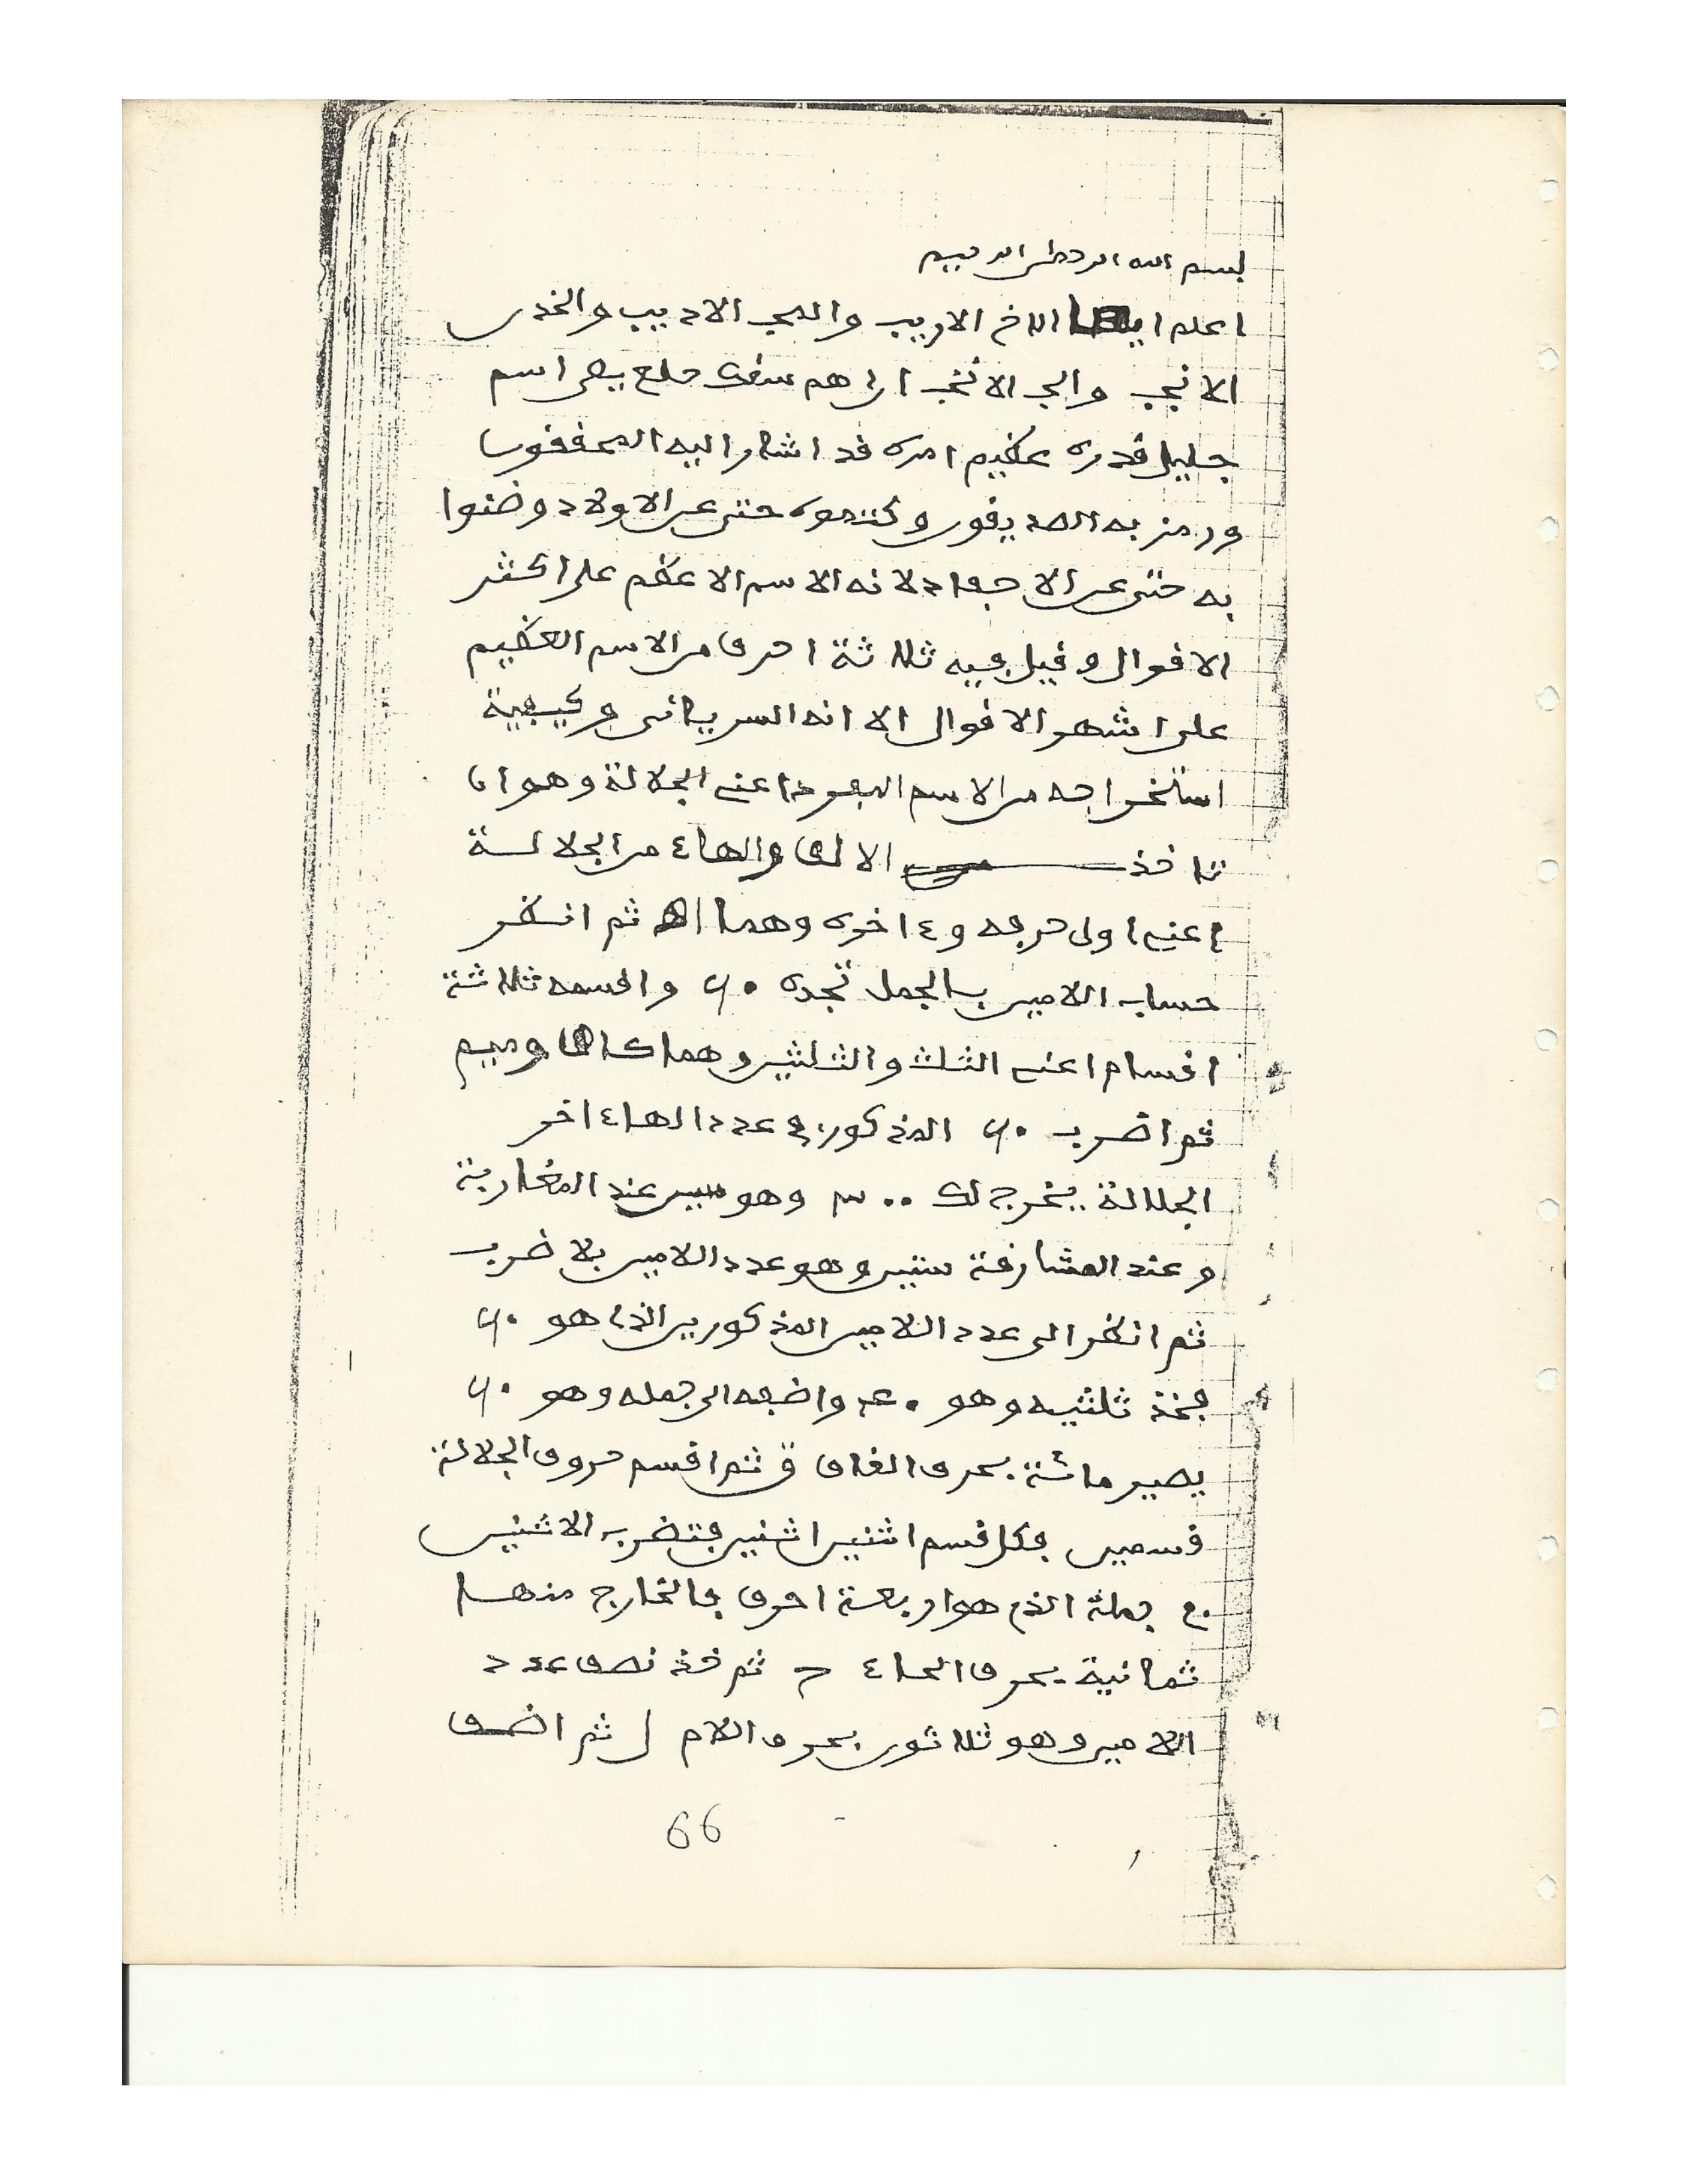 بسم الله الرحمن الرحيم
اعلم ايها الاخ الاريب والمحب الاديب والخدن
الانجب والحب الانخب ان اهم سقك حلع يص اسم
جليل قدره عظيم امره قد اشار اليه المحققون
ورمز به الصديقون وكتموه حتى عن الاولاد وضنوا
به حتى عن الاحفاد لانه الاسم الاعظم على اكثر
الاقوال وقيل فيه ثلاثة احرف من الاسم العظيم
على اشهر الاقوال الا انه السرياني وكيفية
استخراجه من الاسم المفرد اعني الجلالة وهو ان
تاخذ الالف والهاء من الجلالة
اعني اولى حرفه وءاخره وهما اه ثم انظر
حساب اللامين بالجمل تجده ٦٠ واقسمه ثلاثة
اقسام اعني الثلث والثلثين وهما كاف وميم
ثم اضرب ٦٠ المذكور في عدد الهاء اخر
الجلالة يخرج لك ٣٠٠ وهو سين عند المغاربة
وعند المشارقة ستين وهو عدد اللامين بلا ضرب
ثم انظر الى عدد اللامين المذكورين الذي هو ٦٠
فخذ ثلثيه وهو ٤٠ واضفه الى جمله وهو ٦٠
يصير مائة بحرف القاف ق ثم اقسم حروف الجلالة
قسمين فكل قسم اثنين اثنين فتضرب الاثنين
في جملة الذي هو اربعة احرف فالخارج منها
ثمانية بحرف الحاء ح ثم خذ نصف عدد
اللامين وهو ثلاثون بحرف اللام ل ثم اضف
66